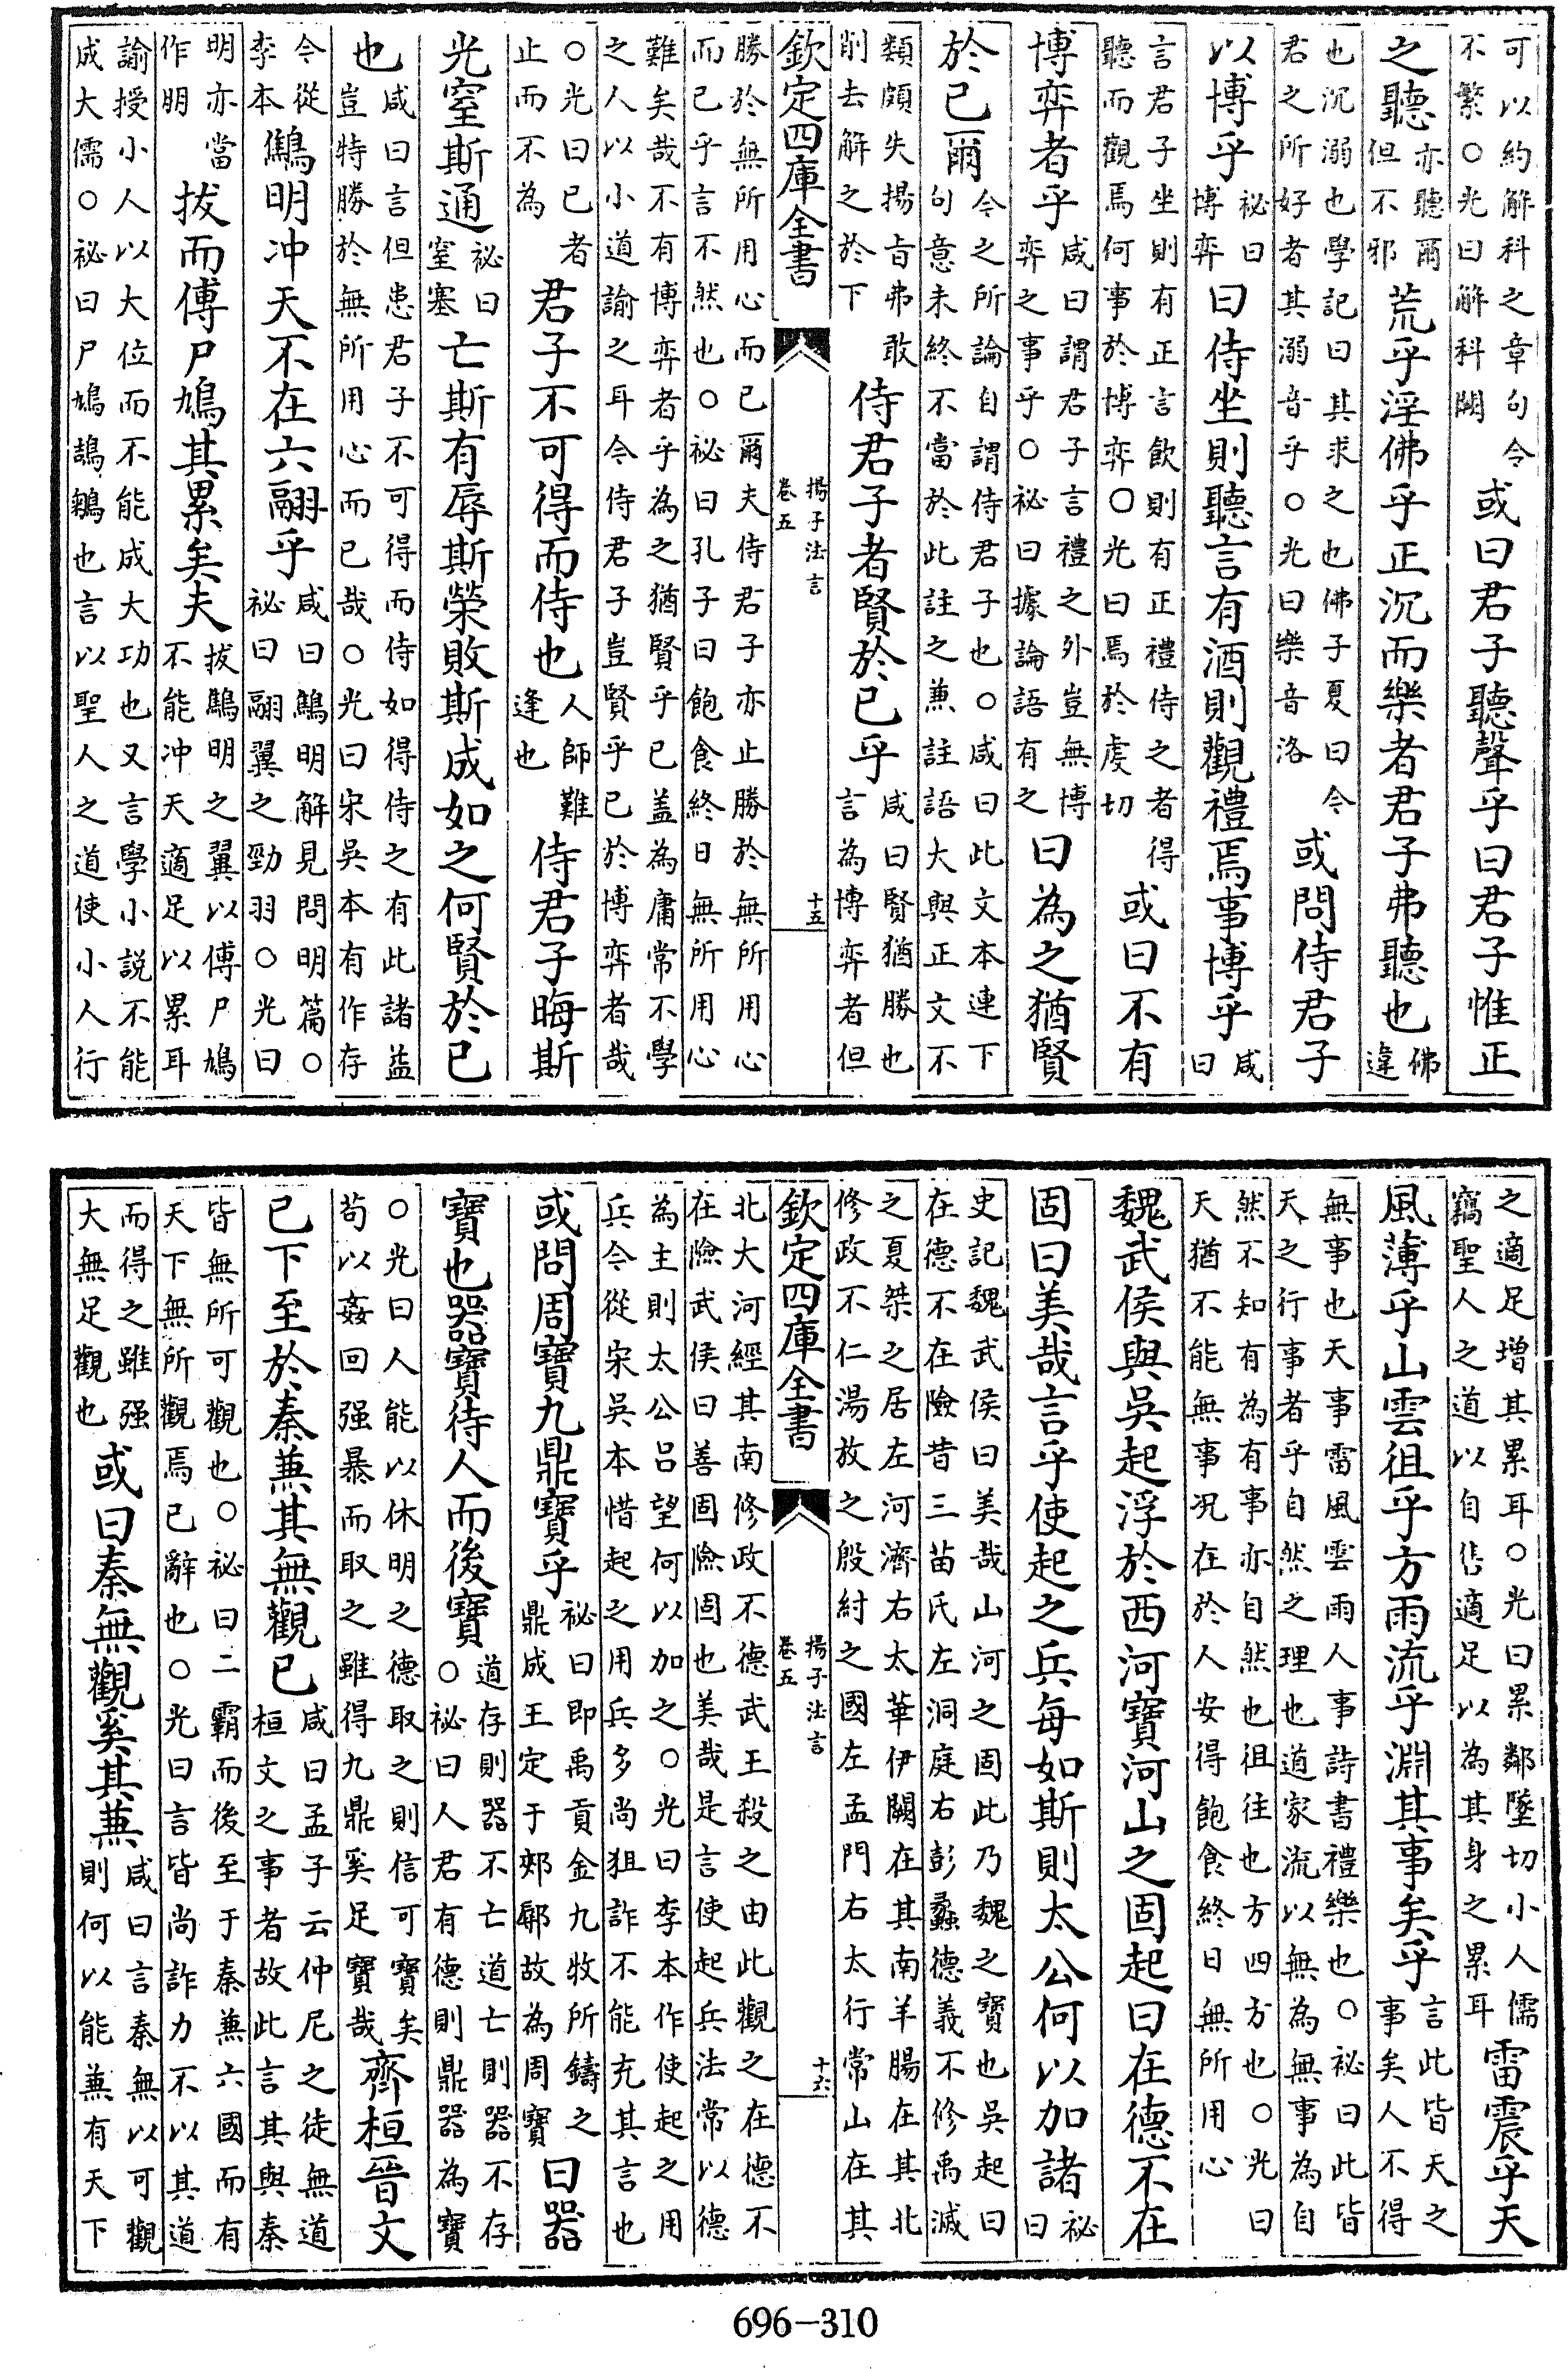 可以約解科之章句今不繁○光曰解科闕或曰君子聽聲乎曰君子惟正
之聽亦聽爾但不邪荒乎淫佛乎正沉而樂者君子弗聽也佛違
也沉溺也學記曰其求之也佛子夏曰今君之所好者其溺音乎○光曰樂音洛或問侍君子
以博乎祕曰博弈曰侍坐則聽言有酒則觀禮焉事博乎咸曰
言君子坐則有正言飲則有正禮侍之者得聽而觀焉何事於博弈○光曰焉於虔切或曰不有
博弈者乎咸曰謂君子言禮之外豈無博弈之事乎○祕曰據論語有之曰為之猶賢
於已爾今之所論自謂侍君子也○咸曰此文本連下句意未終不當於此註之兼註語大與正文不
類頗失揚旨弗敢削去解之於下侍君子者賢於已乎咸曰賢猶勝也言為博弈者但
欽定四庫全書
揚子法言
卷五
十五
勝於無所用心而已爾夫侍君子亦止勝於無所用心而已乎言不然也○祕曰孔子曰飽食終日無所用心
難矣哉不有博弈者乎為之猶賢乎已盖為庸常不學之人以小道諭之耳今侍君子豈賢乎已於博弈者哉
○光曰已者止而不為君子不可得而侍也人師難逢也侍君子晦斯
光窒斯通祕曰窒塞亡斯有辱斯榮敗斯成如之何賢於已
也咸曰言但患君子不可得而侍如得侍之有此諸益豈特勝於無所用心而已哉○光曰宋吳本有作存
今從李本鷦明冲天不在六翮乎咸曰鷦明解見問明篇○祕曰翮翼之勁羽○光曰
明亦當作朋拔而傅尸鳩其累矣夫拔鷦明之翼以傅尸鳩不能冲天適足以累耳
諭授小人以大位而不能成大功也又言學小説不能成大儒○祕曰尸鳩鴶鵴也言以聖人之道使小人行
之適足增其累耳○光曰累鄰墜切小人儒竊聖人之道以自售適足以為其身之累耳雷震乎天
風薄乎山雲徂乎方雨流乎淵其事矣乎言此皆天之事矣人不得
無事也天事雷風雲雨人事詩書禮樂也○祕曰此皆天之行事者乎自然之理也道家流以無為無事為自
然不知有為有事亦自然也徂往也方四方也○光曰天猶不能無事况在於人安得飽食終日無所用心
魏武侯與吳起浮於西河寶河山之固起曰在德不在
固曰美哉言乎使起之兵每如斯則太公何以加諸祕曰
史記魏武侯曰美哉山河之固此乃魏之寶也吳起曰在德不在險昔三苗氏左洞庭右彭蠡德義不修禹滅
之夏桀之居左河濟右太華伊闕在其南羊腸在其北修政不仁湯放之殷紂之國左孟門右太行常山在其
欽定四庫全書
揚子法言
卷五
十六
北大河經其南修政不德武王殺之由此觀之在德不在險武侯曰善固險固也美哉是言使起兵法常以德
為主則太公呂望何以加之○光曰李本作使起之用兵今從宋吳本惜起之用兵多尚狙詐不能充其言也
或問周寶九鼎寶乎祕曰即禹貢金九牧所鑄之鼎成王定于郟鄏故為周寶曰器
寶也器寶待人而後寶道存則器不亡道亡則器不存○祕曰人君有德則鼎器為寶
○光曰人能以休明之德取之則信可寶矣苟以姦回强暴而取之雖得九鼎奚足寶哉齊桓晉文
已下至於秦兼其無觀已咸曰孟子云仲尼之徒無道桓文之事者故此言其與秦
皆無所可觀也○祕曰二霸而後至于秦兼六國而有天下無所觀焉已辭也○光曰言皆尚詐力不以其道
而得之雖强大無足觀也或曰秦無觀奚其兼咸曰言秦無以可觀則何以能兼有天下
696-310